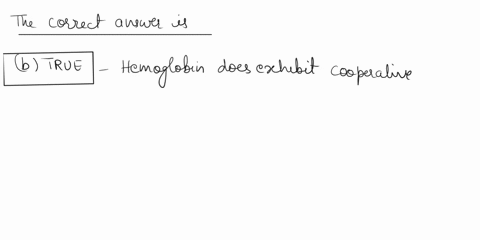 The correct answer is
(b) TRUE – Hemoglobin does exhibit cooperative